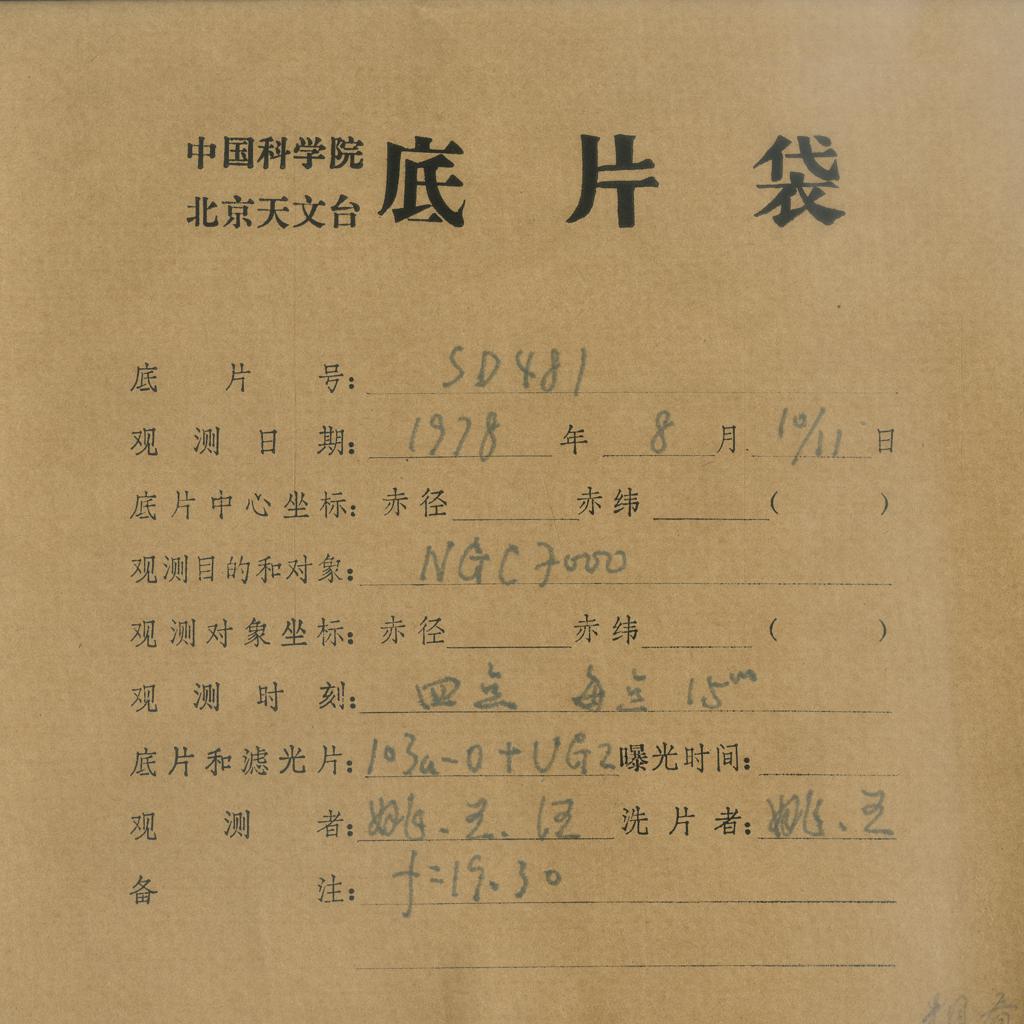 中国科学院
北京天文台
底片袋
底片号: SD481
观测日期: 1978年 8月 10/11日
底片中心坐标: 赤径 赤纬 ( )
观测目的和对象: NGC7000
观测对象坐标: 赤径 赤纬 ( )
观测时刻: 四点 每点 15m
底片和滤光片: 103a-O+UG2 曝光时间:
观测者: 姚.王.汪 洗片者: 姚.王
备注: f=19.30